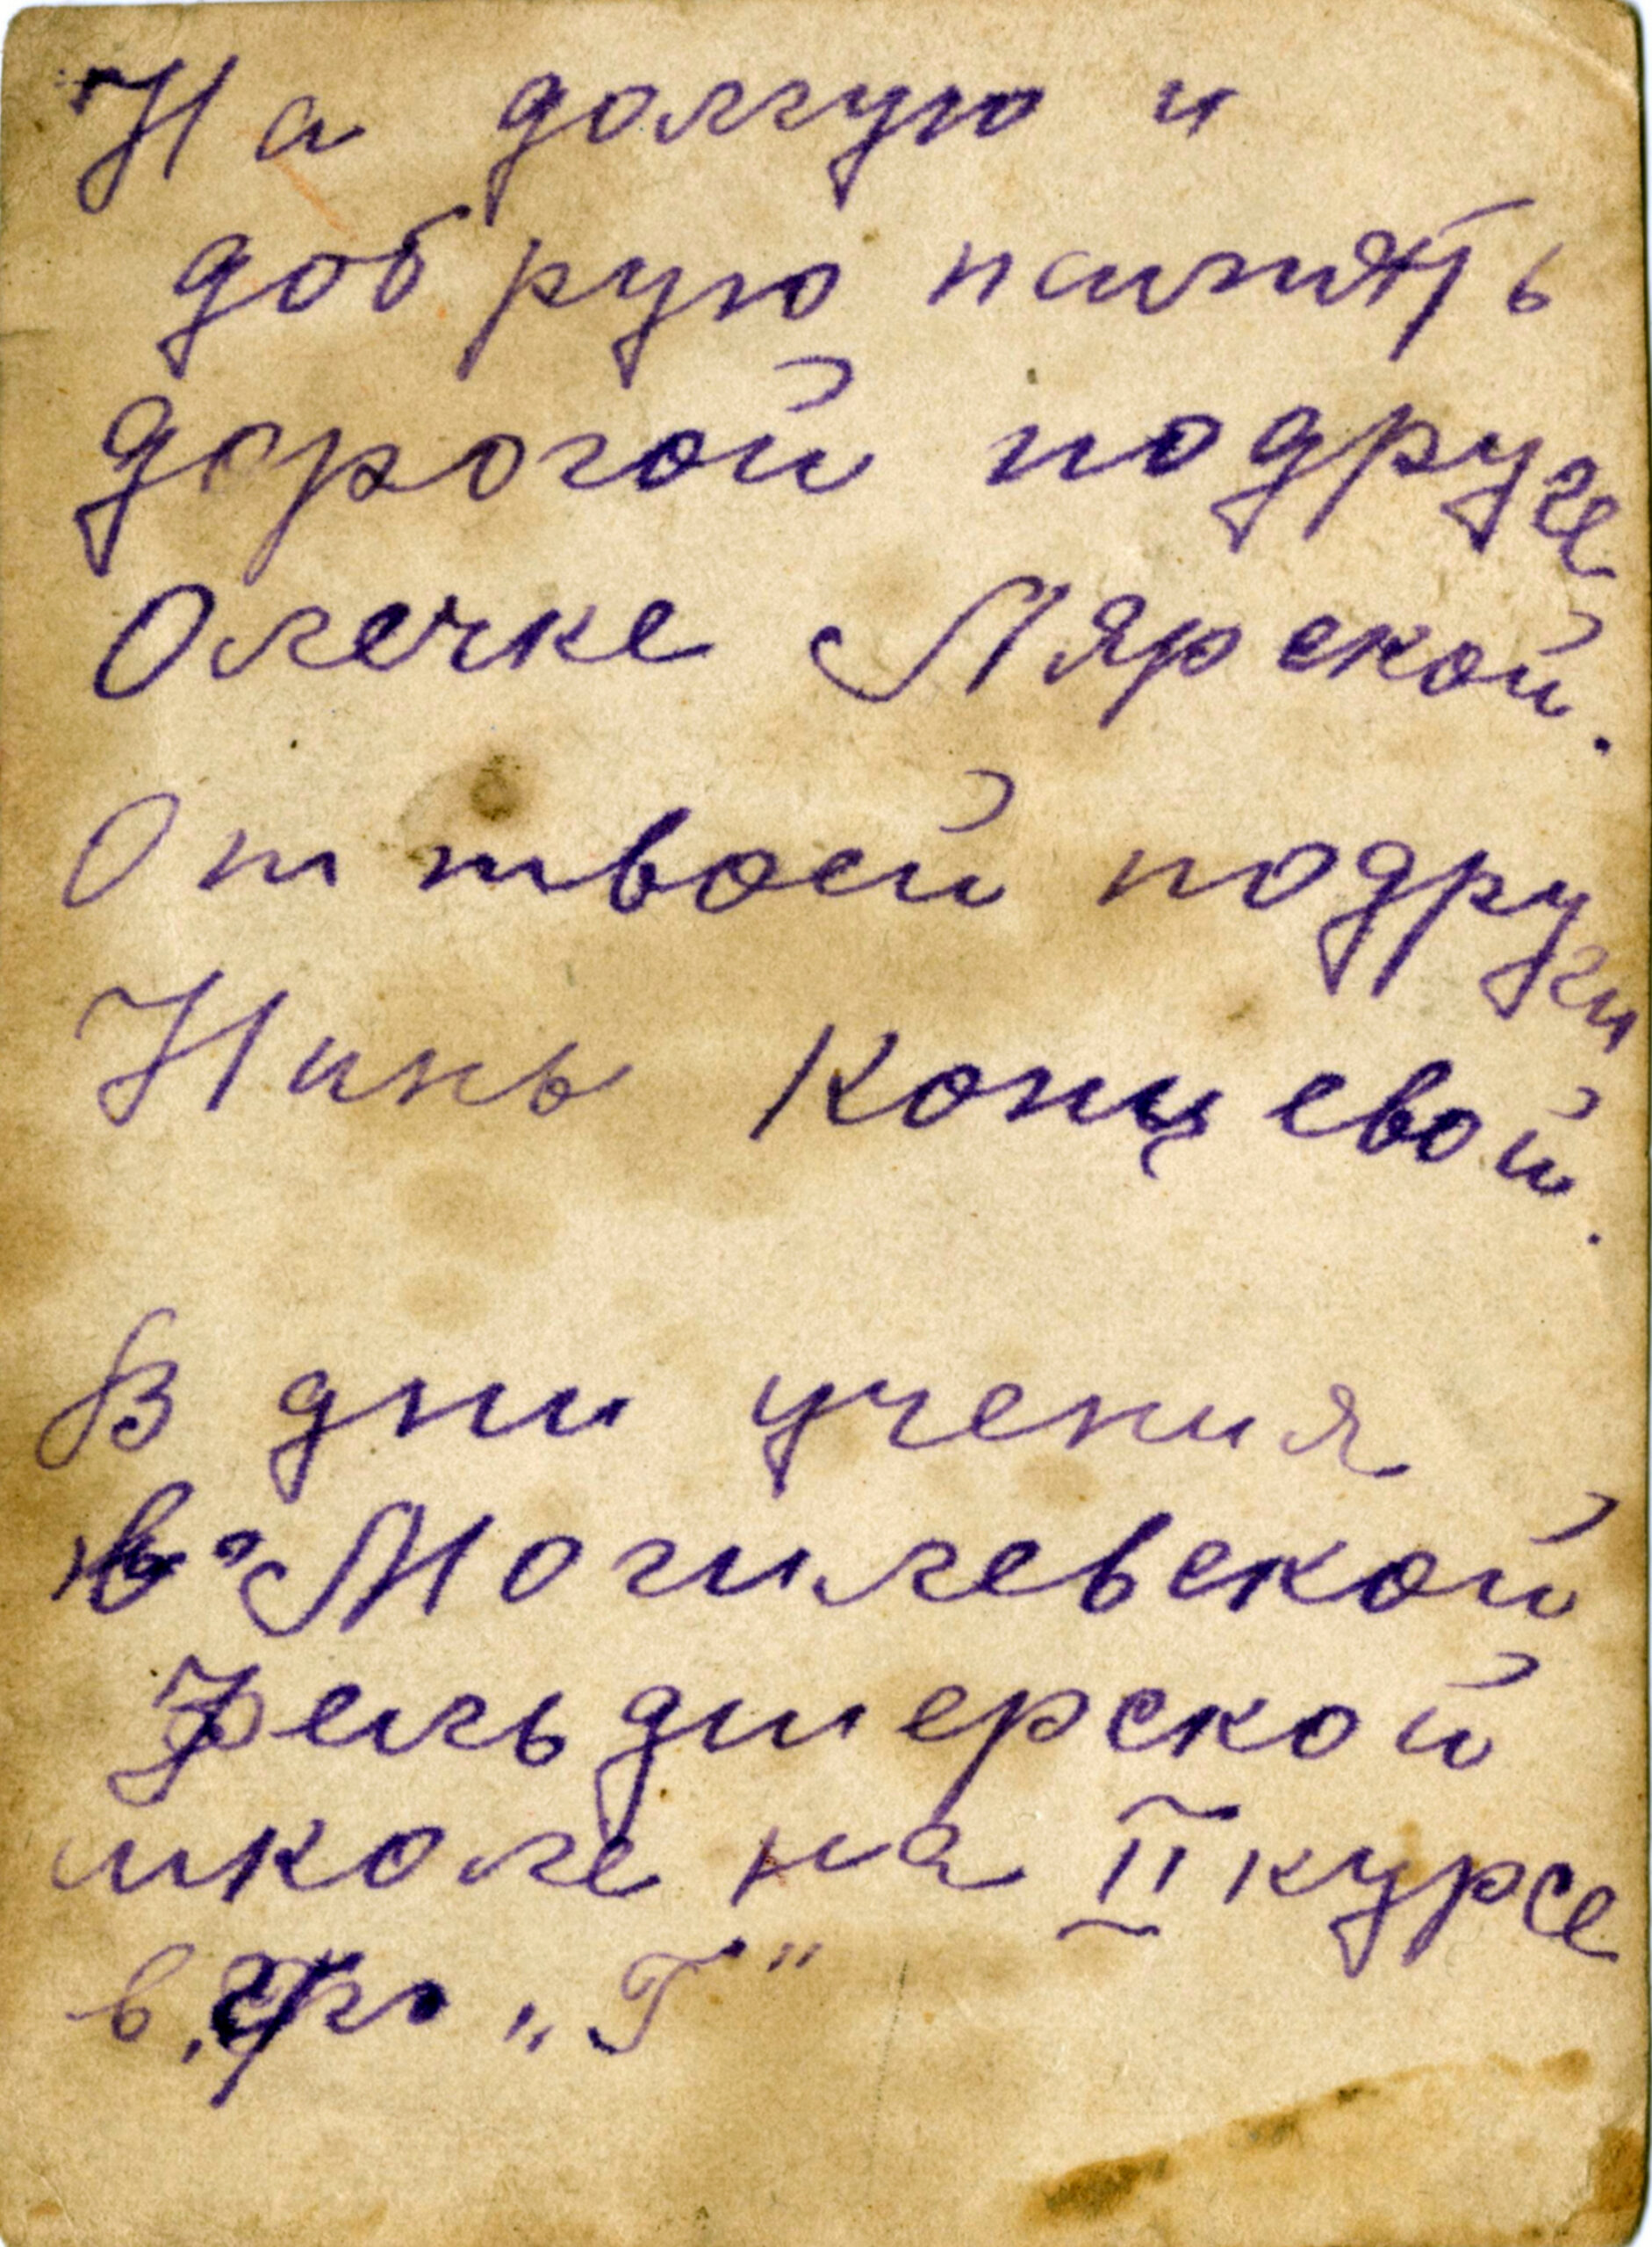 На долгую и
добрую память
дорогой подруге
Олечке Лярской.
От твоей подруги
Нинь Концевой.
В дни учения
в Могилевской
Фельдшерской
школе на II курсе
в гр. „Г"